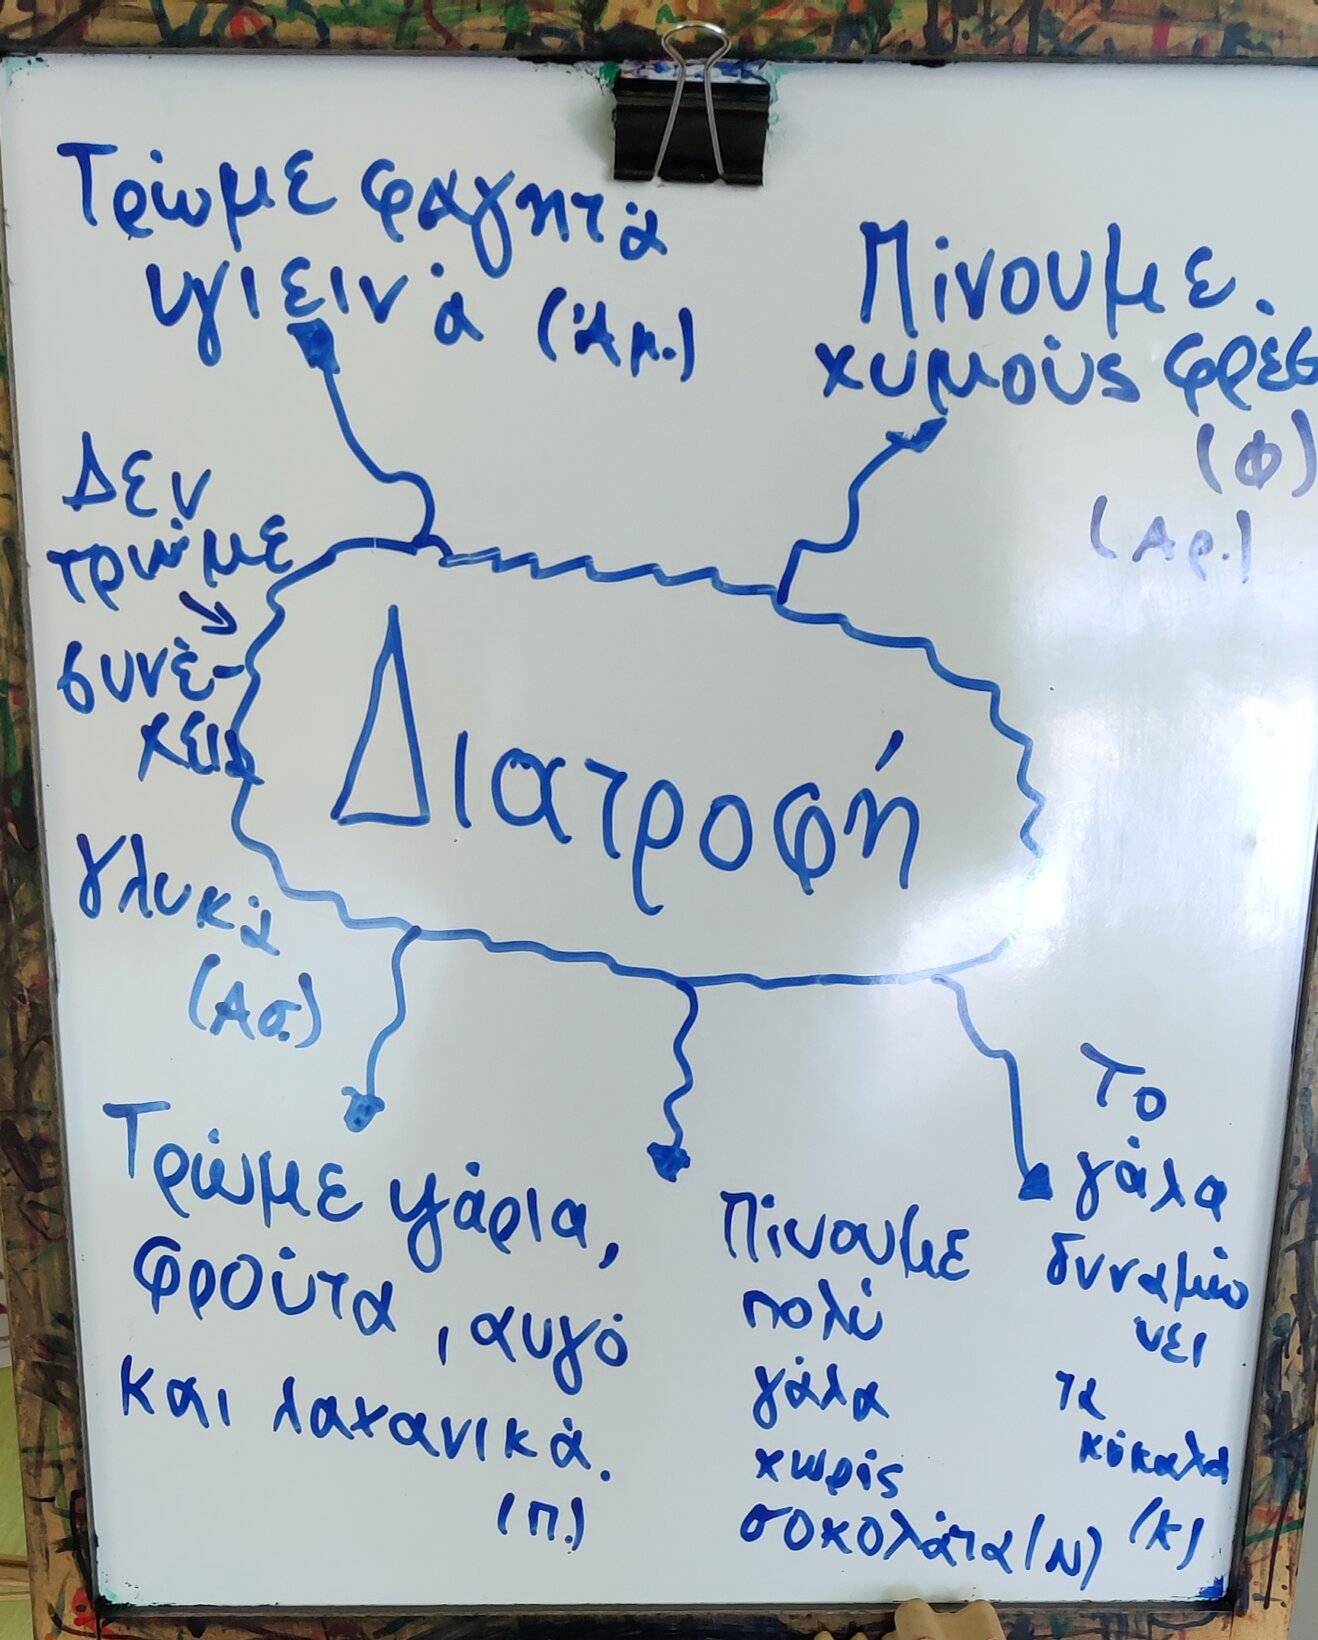 Τρώμε φαγητά
υγιεινά (Άμ.)
Πίνουμε.
χυμούς φρέσ
(Φ)
(Αρ.)
Δεν
τρώμε
συνέ-
χεια
γλυκά
(Ασ.)
Διατροφή
Τρώμε ψάρια,
φρούτα, αυγό
και λαχανικά.
(π.)
Πίνουμε
πολύ
γάλα
χωρίς
σοκολάτα (Ν)
Το
γάλα
δυναμώ
νει
τα
κόκαλα
(κ)